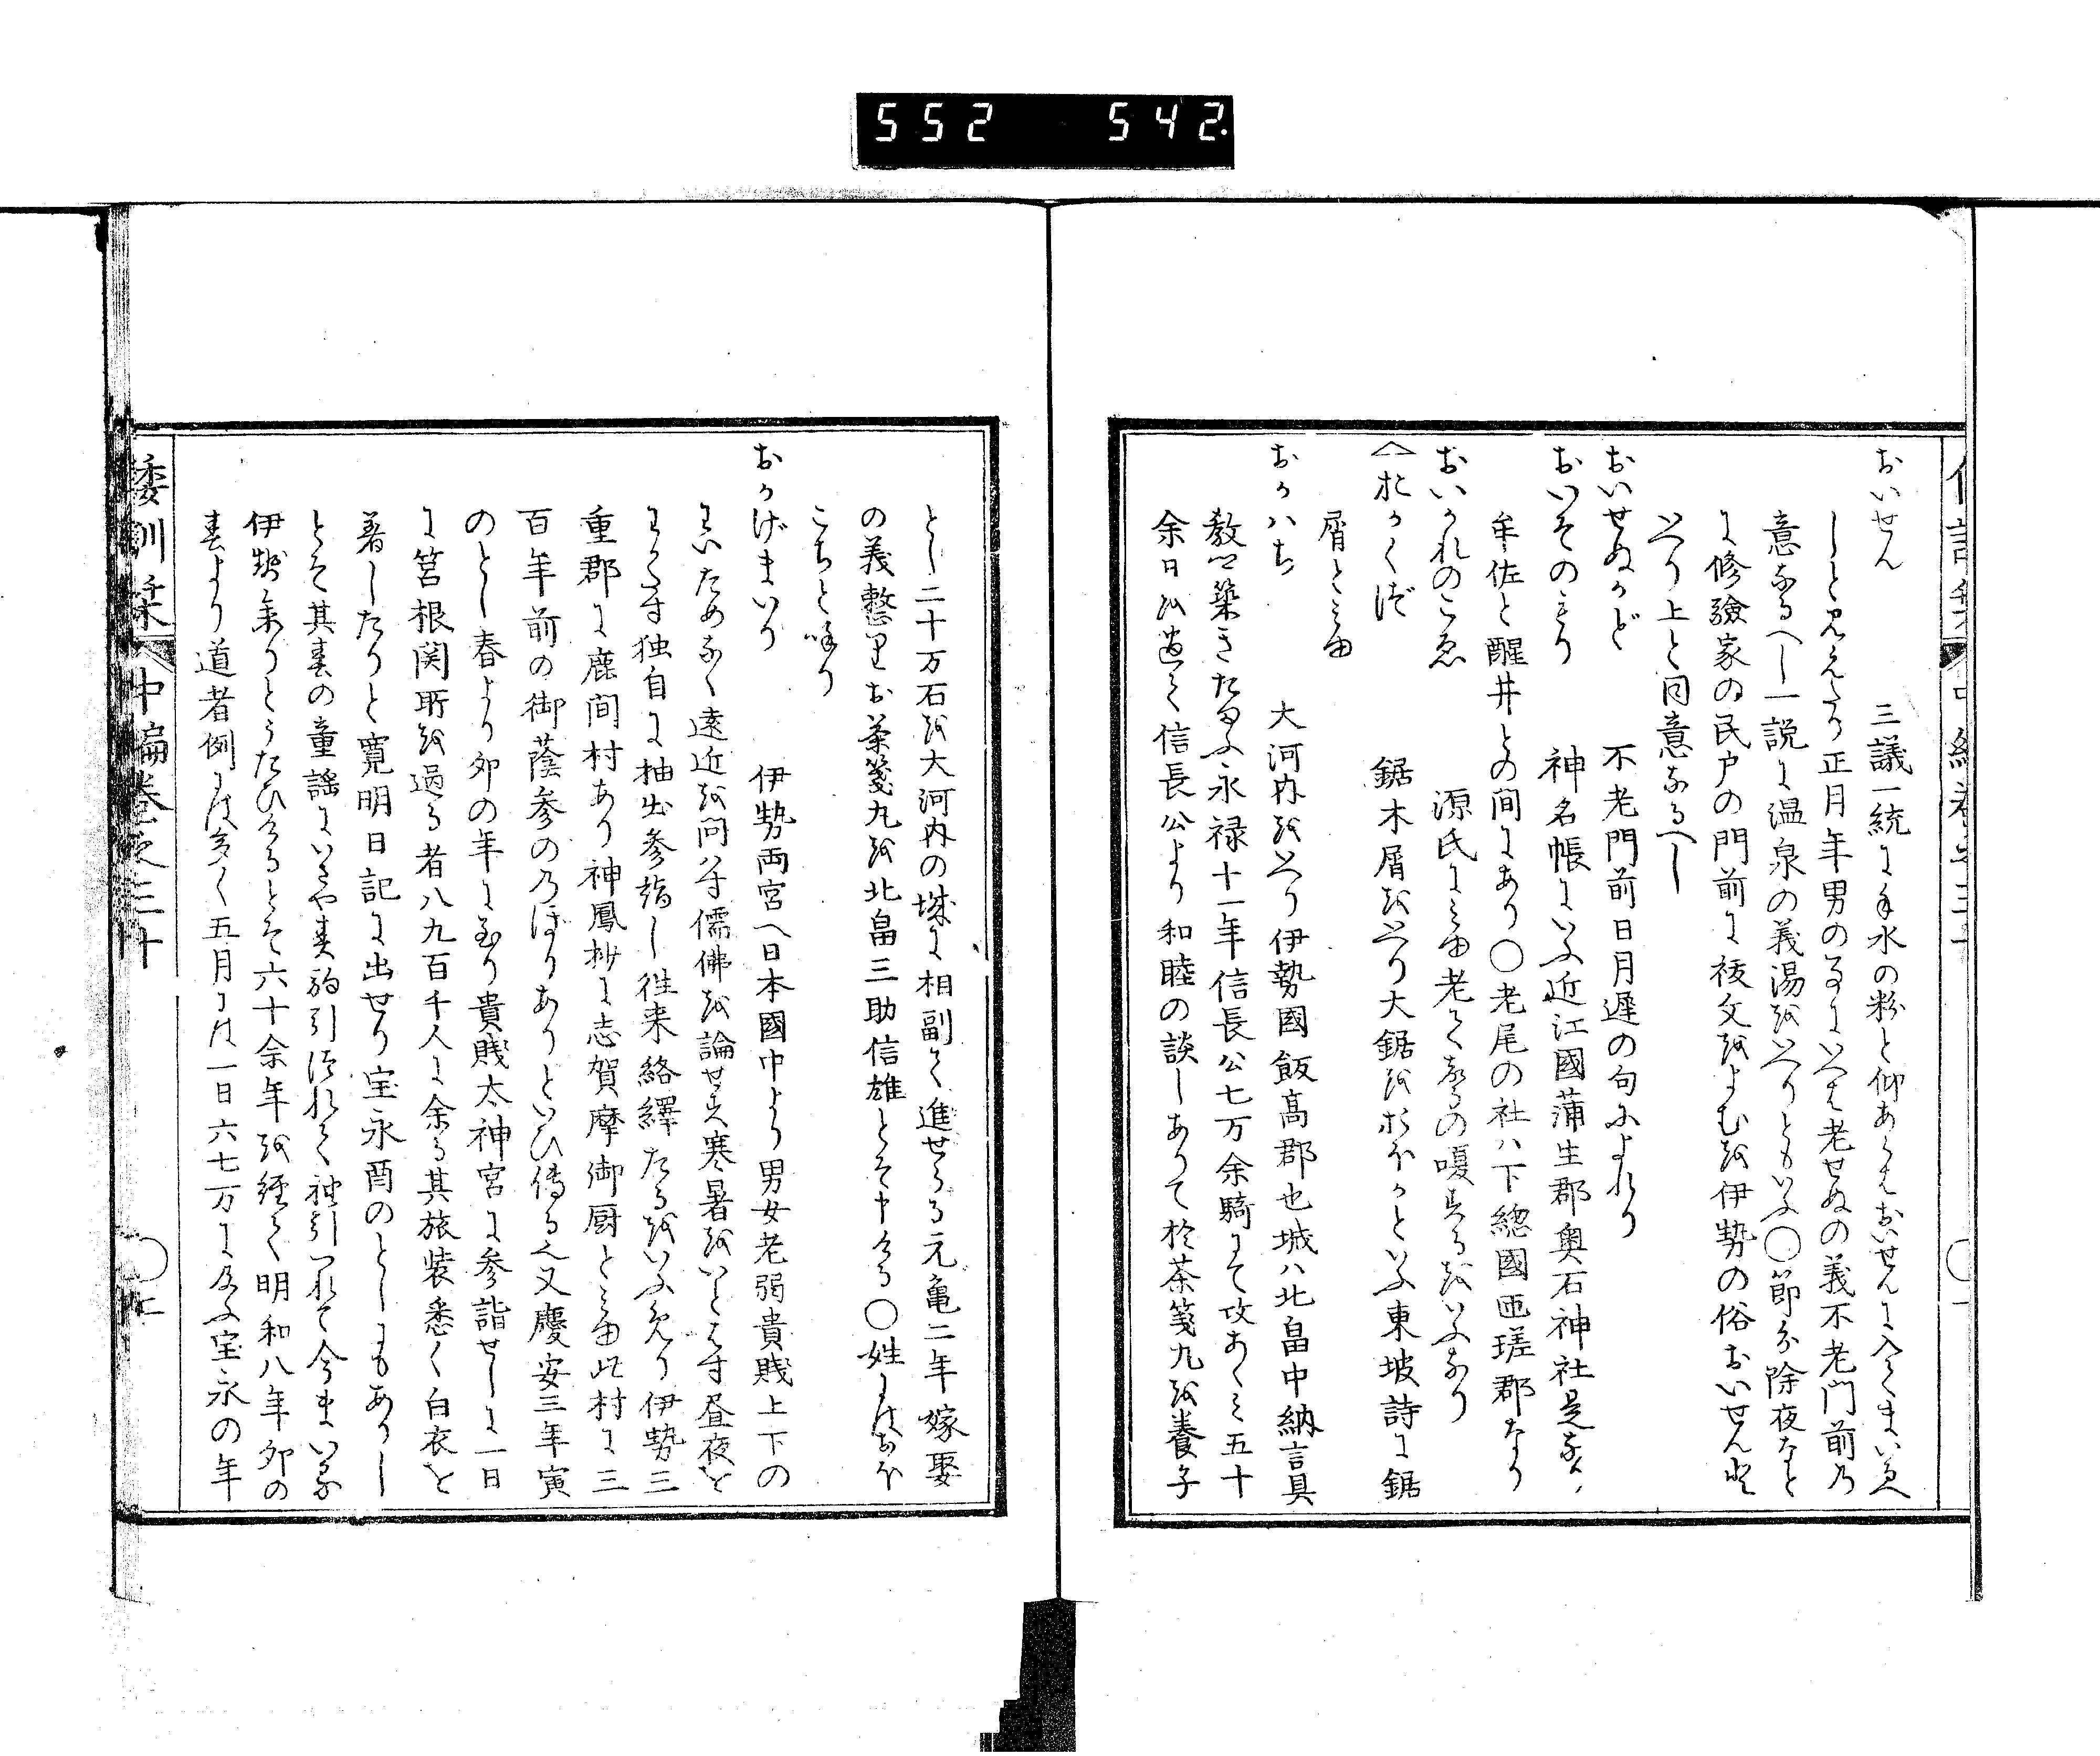 552 542.
おいせん 三議一統に手水の粉と仰あらはおいせんに入てまいらへ
しと見えたり正月年男の事にいへは老せぬの義不老門前乃
意なるへし一説に温泉の義湯をいへりともいふ〇節分除夜なと
に修験家の民戸の門前に祓文をよむを伊勢の俗おいせんと
いへり上と同意なるへし
おいせぬかど 不老門前日月遅の句によれり
おいそのもり 神名帳にいふ近江國蒲生郡奥石神社是なり
牟佐と醒井との間にあり〇老尾の社ハ下總國匝瑳郡なり
おいかれのこゑ 源氏にみゆ老て声の嗄たるをいふなり
へおがくず 鋸木屑をいへり大鋸をおほがといふ東坡詩に鋸
屑とみゆ
おかはち 大河内をいへり伊勢國飯高郡也城ハ北畠中納言具
教公築きたまふ永禄十一年信長公七万余騎にて攻あぐミ五十
余日を過て信長公より和睦の談しありて於茶箋丸を養子
とし二十万石を大河内の城に相副て進せらる元亀二年嫁娶
の義整りお茶箋丸を北畠三助信雄とそ申ける〇姓にはおほ
こちと唱り
おかげまいり 伊勢両宮へ日本國中より男女老弱貴賤上下の
わいためなく遠近を問はす儒佛を論せす寒暑をいとはす昼夜を
わかたす独自に抽出参詣し徃来絡繹たるをいふめり伊勢三
重郡に鹿間村あり神鳳抄に志賀摩御厨とみゆ此村に三
百年前の御蔭参ののぼりありといひ傳る也又慶安三年寅
のとし春より卯の年に至り貴賤太神宮に参詣せしに一日
に筥根関所を過る者八九百千人に余る其旅装悉く白衣を
著したりと寛明日記に出せり宝永酉のとしにもありし
とそ其春の童謡にいさや春駒引つれて袖引つれて今まいる
伊勢参りとうたひけるとそ六十余年を経て明和八年卯の
春より道者例には多く五月には一日六七万に及ふ宝永の年
倭訓栞 中編巻之三十